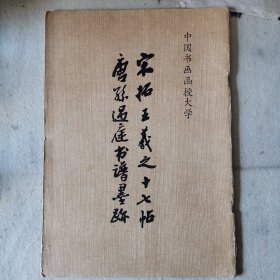 中国书画函授大学
宋拓王羲之十七帖
唐孙过庭书谱墨跡